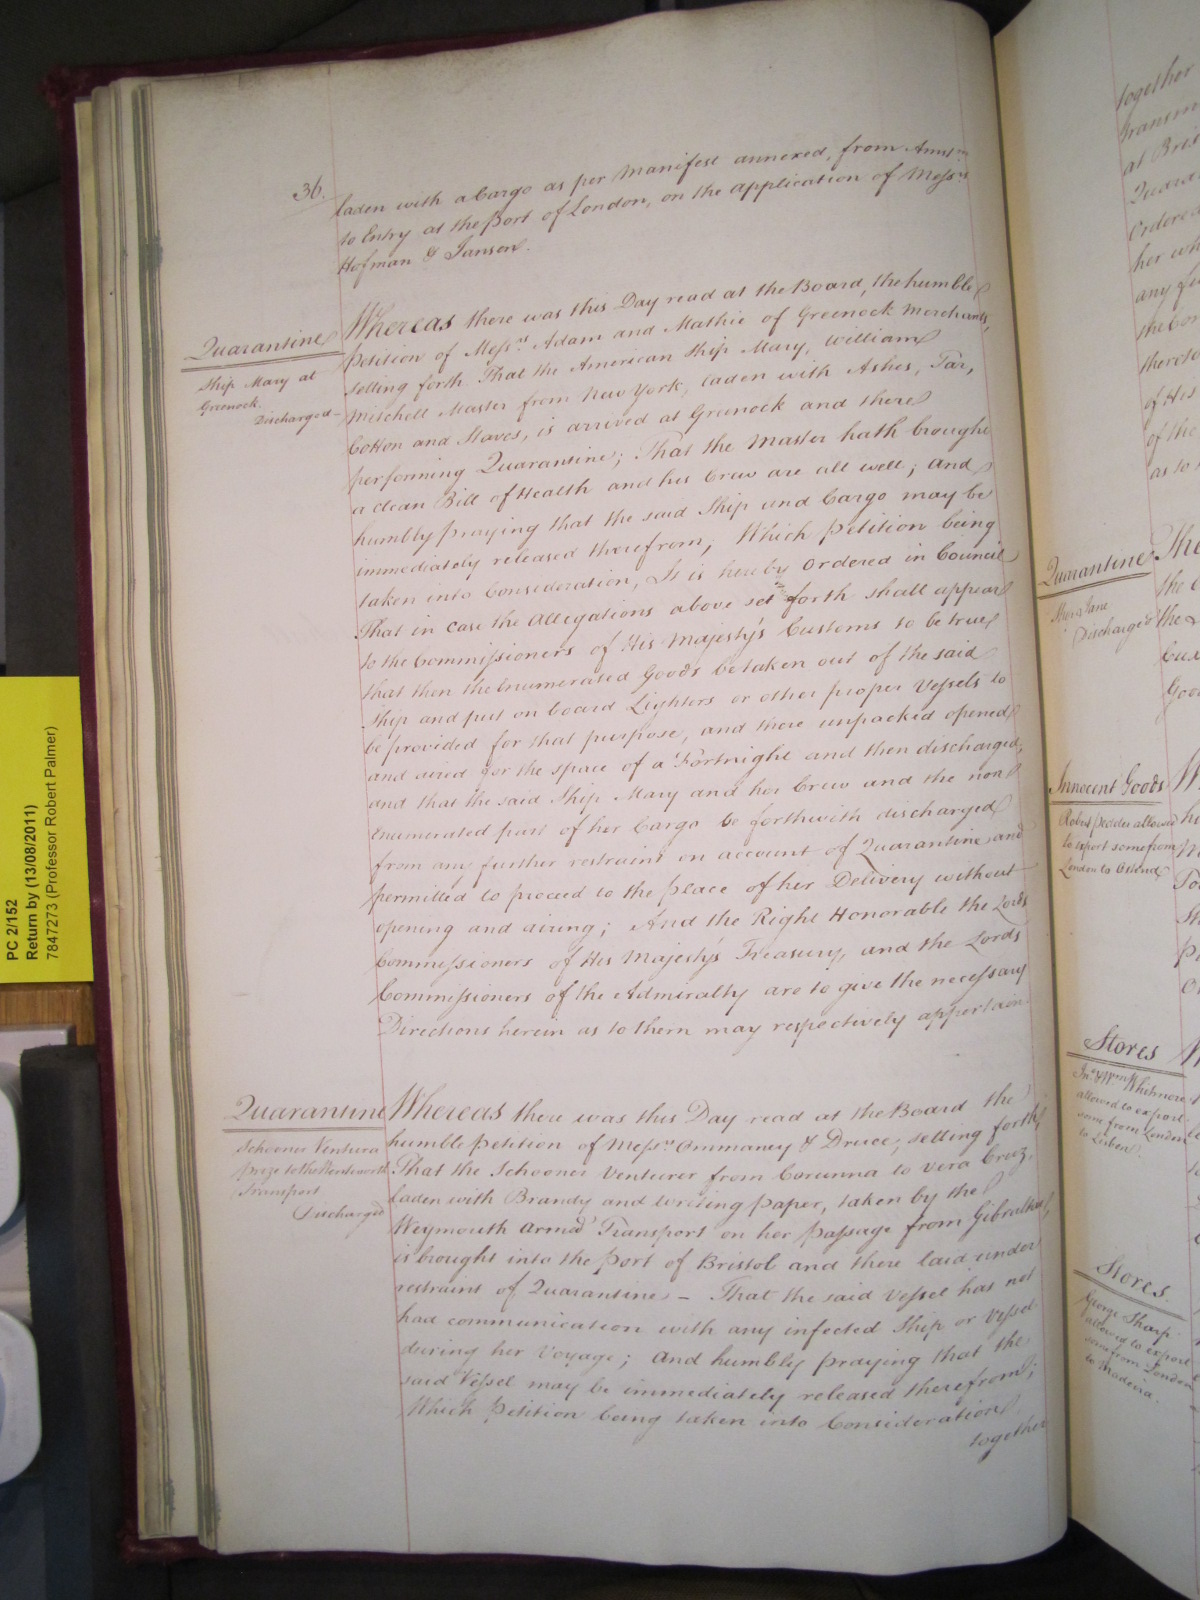 36.
laden with a Cargo as per Manifest annexed, from Amstm
to Entry at the Port of London, on the application of Messrs
Hofman & Janson.
Quarantine
Ship Mary at
Greenock.
Discharged
Whereas there was this Day read at the Board, the humble
Petition of Messrs Adam and Mathie of Greenock Merchants,
setting forth That the American Ship Mary, William
Mitchell Master from New York, laden with Ashes, Tar,
Cotton and Staves, is arrived at Greenock and there
performing Quarantine; That the Master hath brought
a clean Bill of Health and his Crew are all well; and
humbly praying that the said Ship and Cargo may be
immediately released therefrom; Which Petition being
taken into Consideration, It is hereby Ordered in Council
That in case the Allegations above set forth shall appear
to the Commissioners of His Majesty's Customs to be true,
that then the Enumerated Goods be taken out of the said
Ship and put on board Lighters or other proper Vessels to
be provided for that purpose, and there unpacked opened
and aired for the space of a Fortnight and then discharged,
and that the said Ship Mary and her Crew and the non
Enumerated part of her Cargo be forthwith discharged
from any further restraint on account of Quarantine, and
permitted to proceed to the place of her Delivery without
opening and airing; And the Right Honorable the Lords
Commissioners of His Majesty's Treasury, and the Lords
Commissioners of the Admiralty are to give the necessary
Directions herein as to them may respectively appertain
Quarantine
Schooner Ventura
Prize to the Wentworth
Transport
Discharged
Whereas there was this Day read at the Board the
humble Petition of Messrs Ommaney & Druce, setting forth
That the Schooner Venturer from Corunna to Vera Cruz,
laden with Brandy and Writing paper, taken by the
Weymouth Armed Transport on her passage from Gibraltar,
is brought into the Port of Bristol and there laid under
restraint of Quarantine – That the said Vessel has not
had communication with any infected Ship or Vessel
during her Voyage; and humbly praying that the
said Vessel may be immediately released therefrom;
Which Petition being taken into Consideration
together
PC 2/152
Return by (13/08/2011)
7847273 (Professor Robert Palmer)
together
at Bris
Ordered
her wh
any fu
of His
of the
as to
Quarantine
Discharged
The
Innocent Goods
Robert Pedder allowed
to export some from
London to Ostend
Stores
Jno & Wm Whitmore
allowed to export
some from London
to Lisbon
Stores.
George Sharp
allowed to export
some from London
to Madeira.